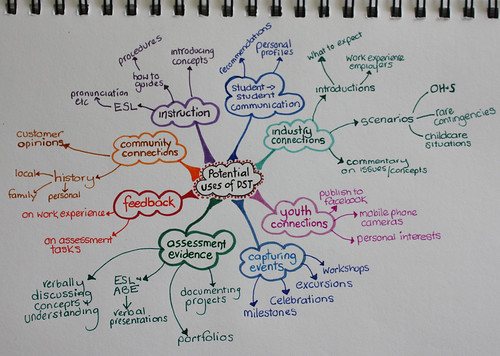 Potential
uses of DST
instruction
procedures
how to
guides
introducing
concepts
ESL
pronunciation
etc
student →
student
communication
recommendations
personal
profiles
industry
connections
introductions
what to expect
work experience
employers
scenarios
OH+S
rare
contingencies
childcare
situations
commentary
on issues/concepts
youth
connections
publish to
facebook
mobile phone
cameras
personal interests
capturing
events
workshops
excursions
celebrations
milestones
assessment
evidence
documenting
projects
portfolios
ESL
ABE
verbal
presentations
verbally
discussing
concepts +
understanding
feedback
on work experience
on assessment
tasks
community
connections
customer
opinions
history
local
family
personal